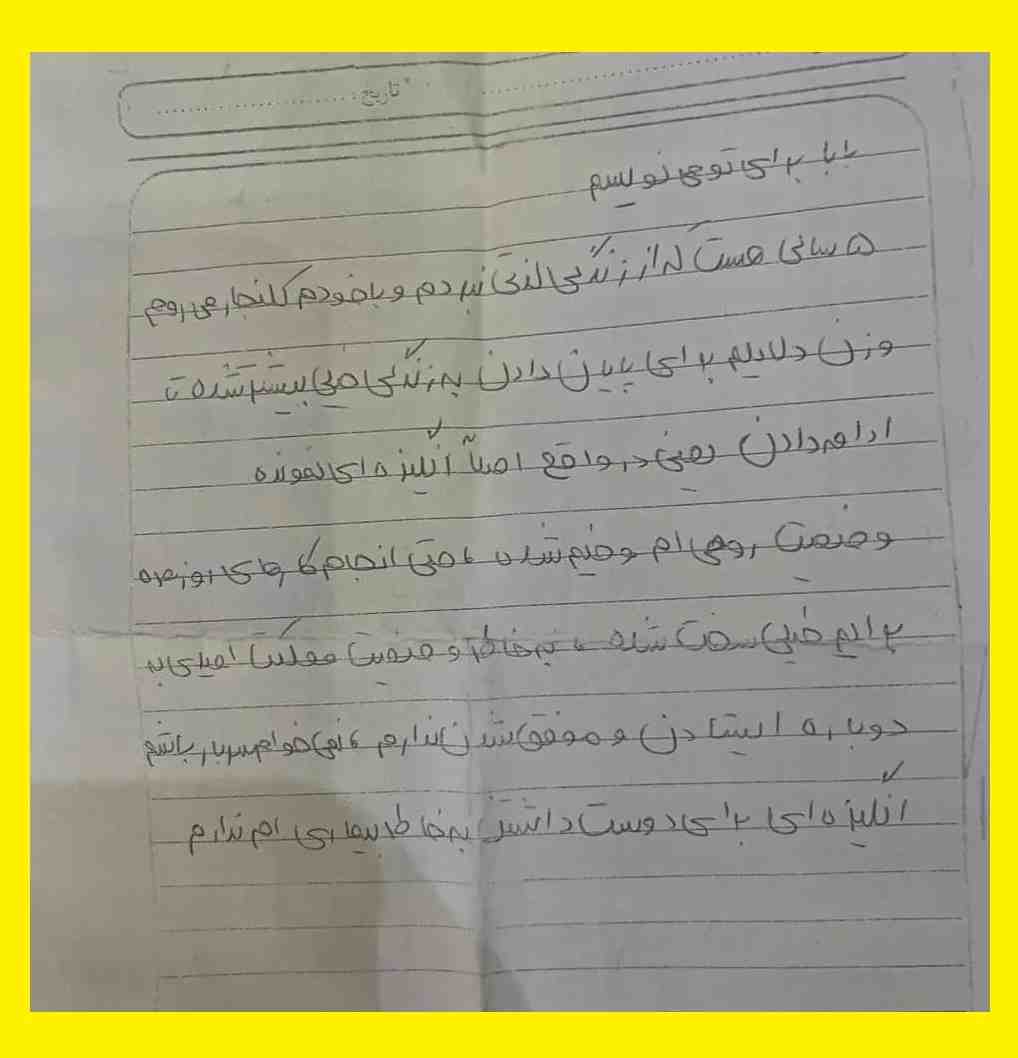 تاریخ:
بابا برای تو می نویسم
۵ سالی هست که از زندگی لذتی نبردم و با خودم کلنجار می روم
وزن دلایلم برای پایان دادن به زندگی خیلی بیشتر شده تا
ادامه دادن یعنی در واقع اصلاً انگیزه ای
وضعیت روحی ام وخیم شده حتی انجام کارهای روزمره
برایم خیلی سخت شده ، به خاطر وضعیت مملکت امیدی به
دوباره ایستادن و موفق شدن ندارم نمی خواهم سربار باشم
انگیزه ای برای دوست داشتن به خاطر بیماری ام ندارم